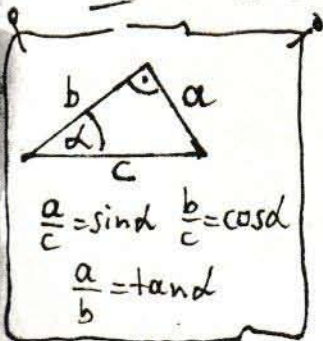 b a
α
c
a/c = sinα b/c = cosα
a/b = tanα